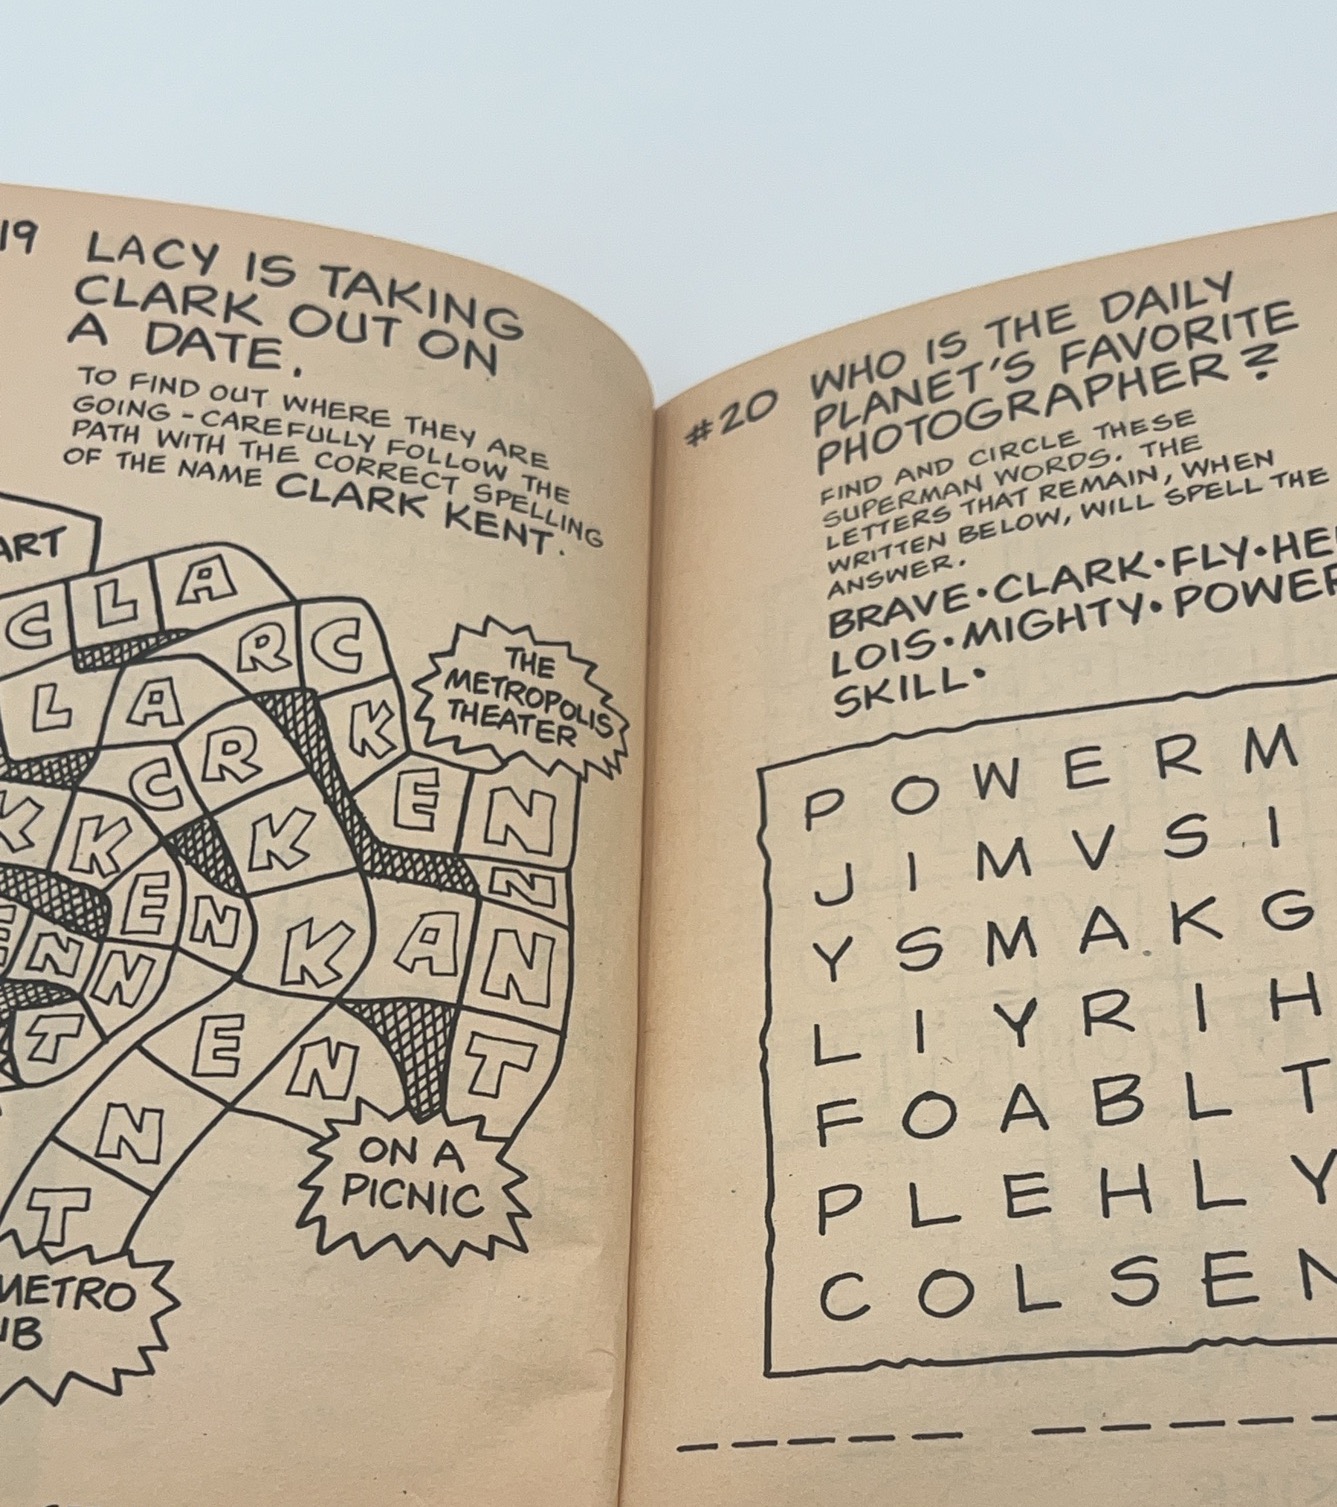 19 LACY IS TAKING
CLARK OUT ON
A DATE.
TO FIND OUT WHERE THEY ARE
GOING - CAREFULLY FOLLOW THE
PATH WITH THE CORRECT SPELLING
OF THE NAME CLARK KENT.
ART
C L A
R C
L A
K
R
C
E N
K K
K
N
E N
K A N
E N N
T
E
N
T
N
T
THE
METROPOLIS
THEATER
ON A
PICNIC
METRO
UB
#20 WHO IS THE DAILY
PLANET'S FAVORITE
PHOTOGRAPHER?
FIND AND CIRCLE THESE
SUPERMAN WORDS. THE
LETTERS THAT REMAIN, WHEN
WRITTEN BELOW, WILL SPELL THE
ANSWER.
BRAVE • CLARK • FLY • HE
LOIS • MIGHTY • POWER
SKILL •
P O W E R M
J I M V S I
Y S M A K G
L I Y R I H
F O A B L T
P L E H L Y
C O L S E N